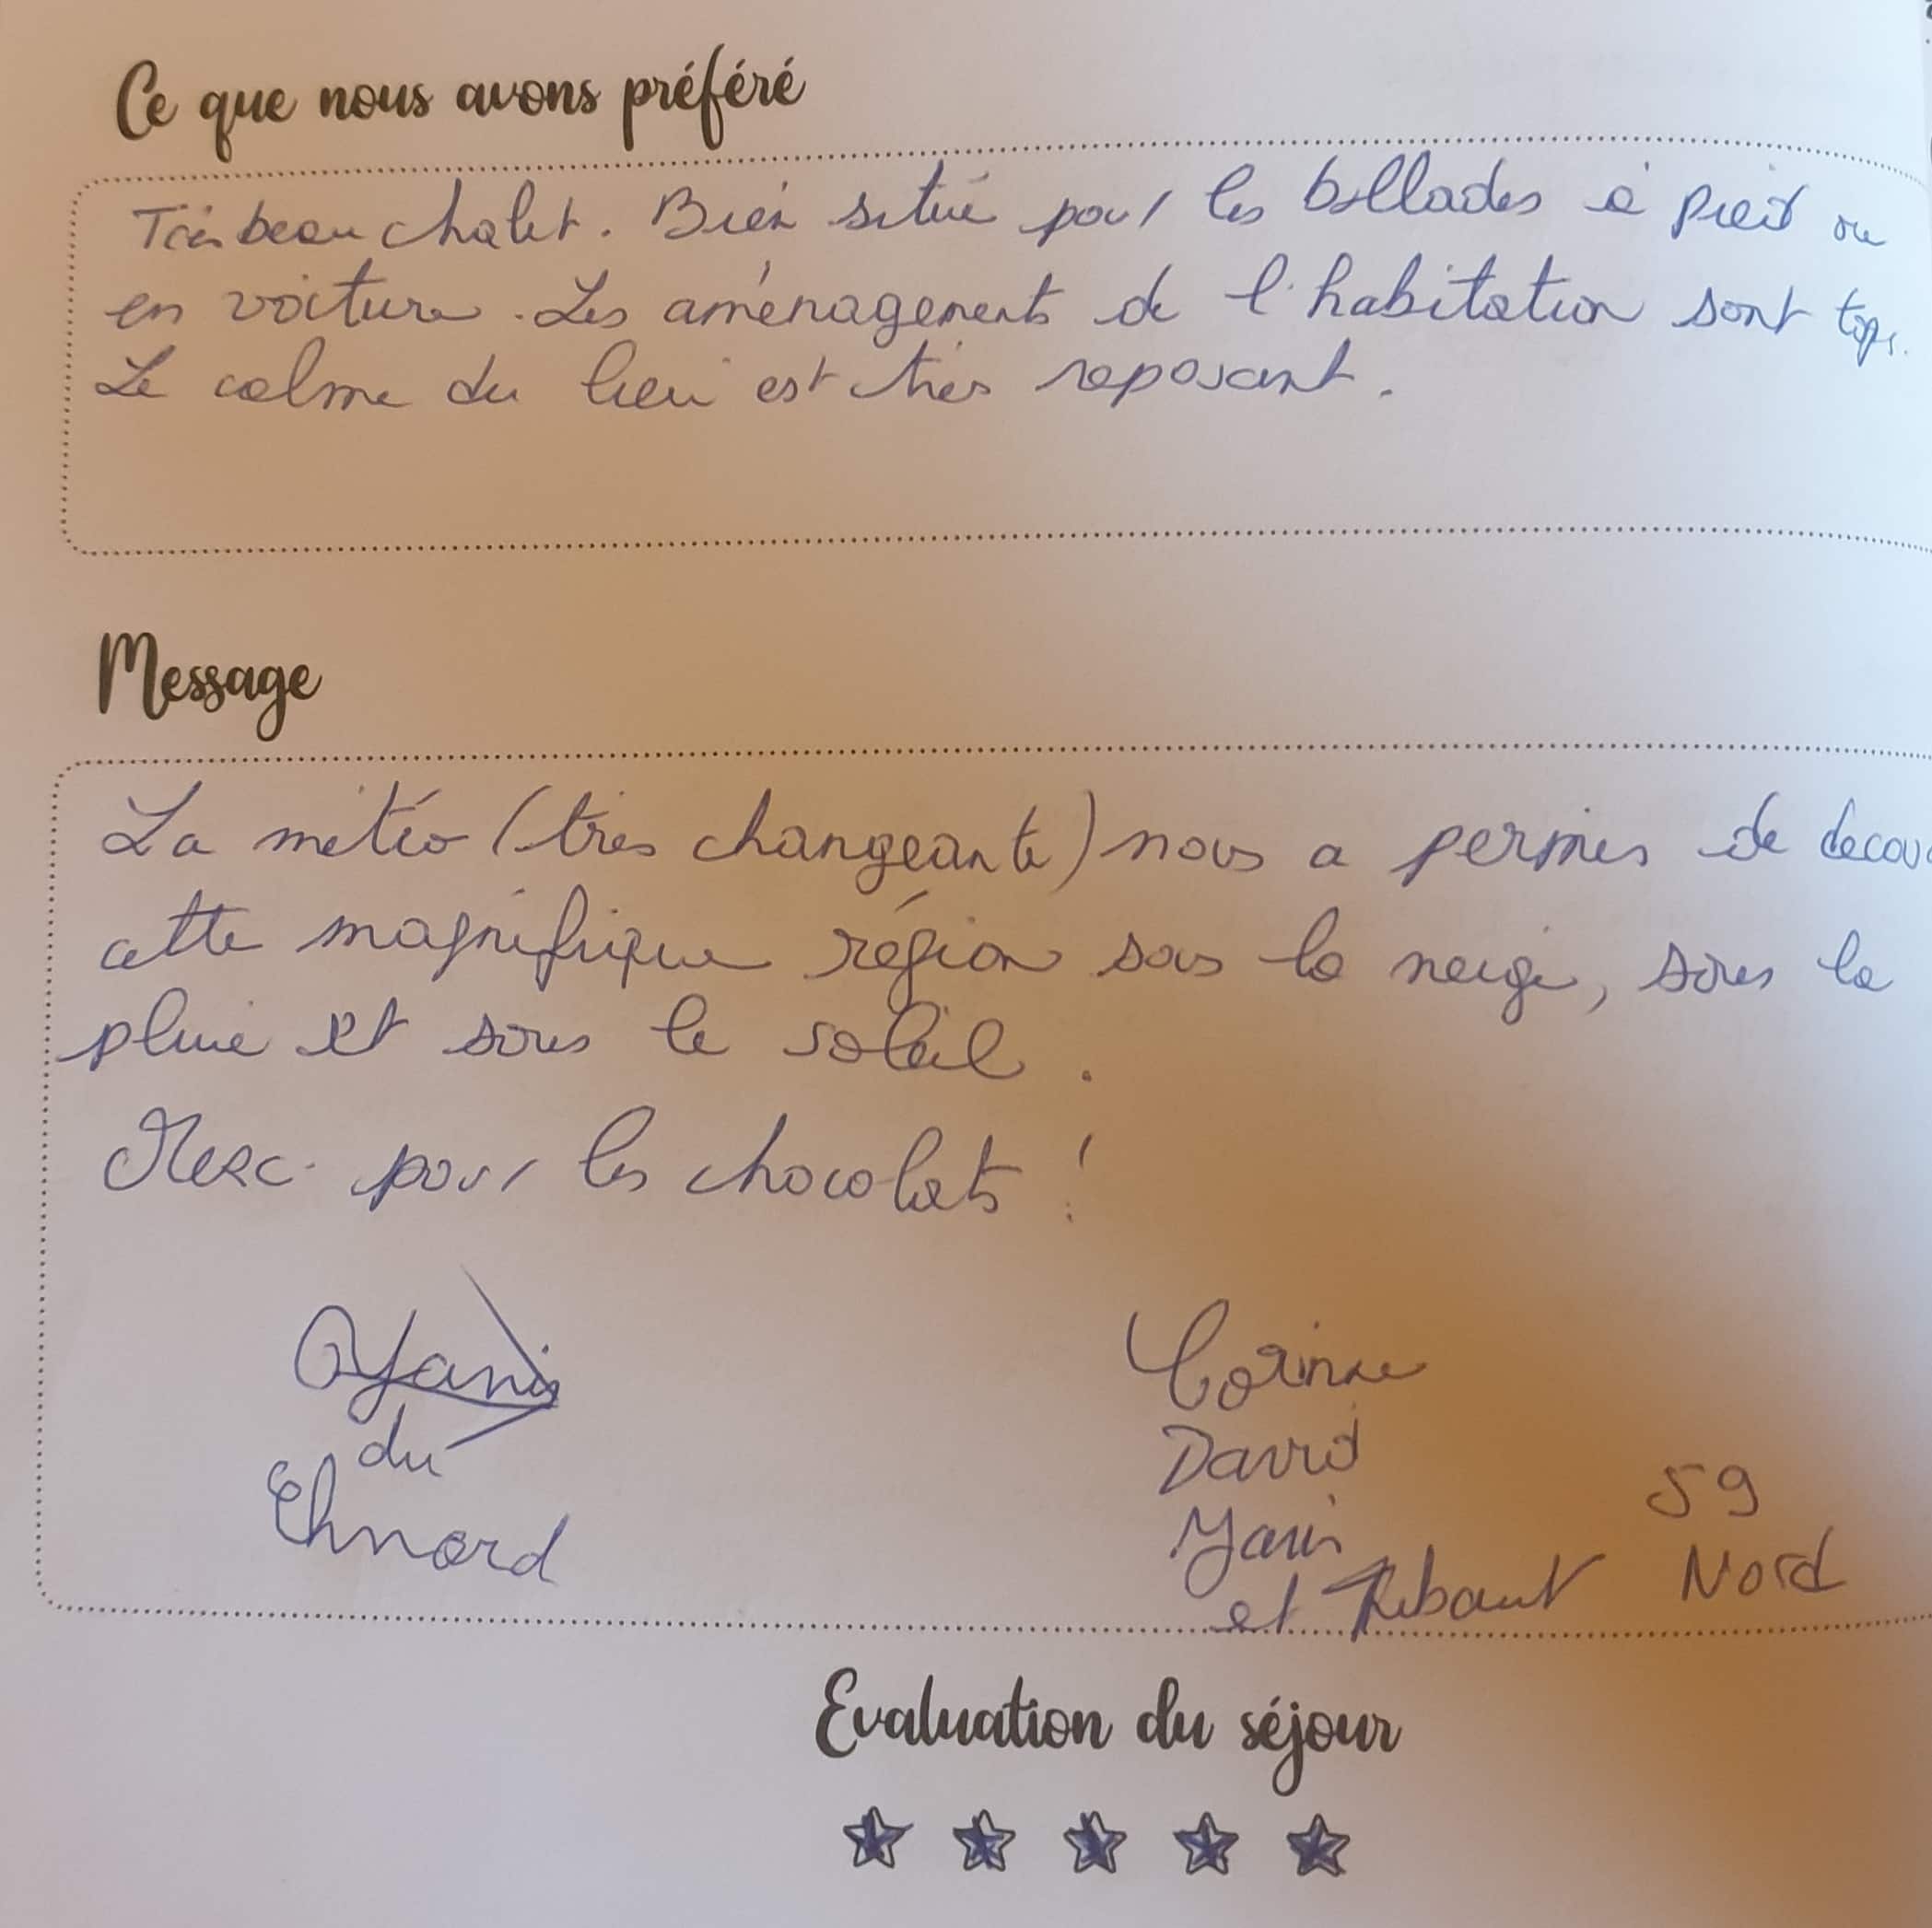 Ce que nous avons préféré
Très beau chalet. Bien situé pour les ballades à pied ou
en voiture. Les aménagements de l'habitation sont tops.
Le calme du lieu est très reposant.
Message
La météo (très changeante) nous a permis de decou
cette magnifique région sous la neige, sous la
pluie et sous le soleil.
Merci pour les chocolats !
Yanis
du
Chnord
Corinne
David
Yanis
et Thibaut
59
Nord
Evaluation du séjour